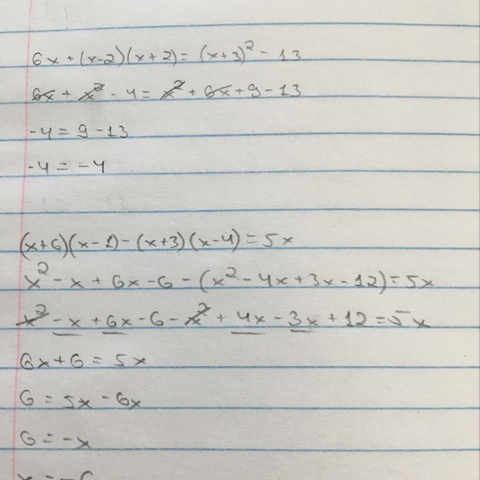 6x + (x-2)(x+2) = (x+3)² - 13
6x + x² - 4 = x² + 6x + 9 - 13
-4 = 9 - 13
-4 = -4
(x+6)(x-1) - (x+3)(x-4) = 5x
x² - x + 6x - 6 - (x² - 4x + 3x - 12) = 5x
x² - x + 6x - 6 - x² + 4x - 3x + 12 = 5x
6x + 6 = 5x
6 = 5x - 6x
6 = -x
x = -6